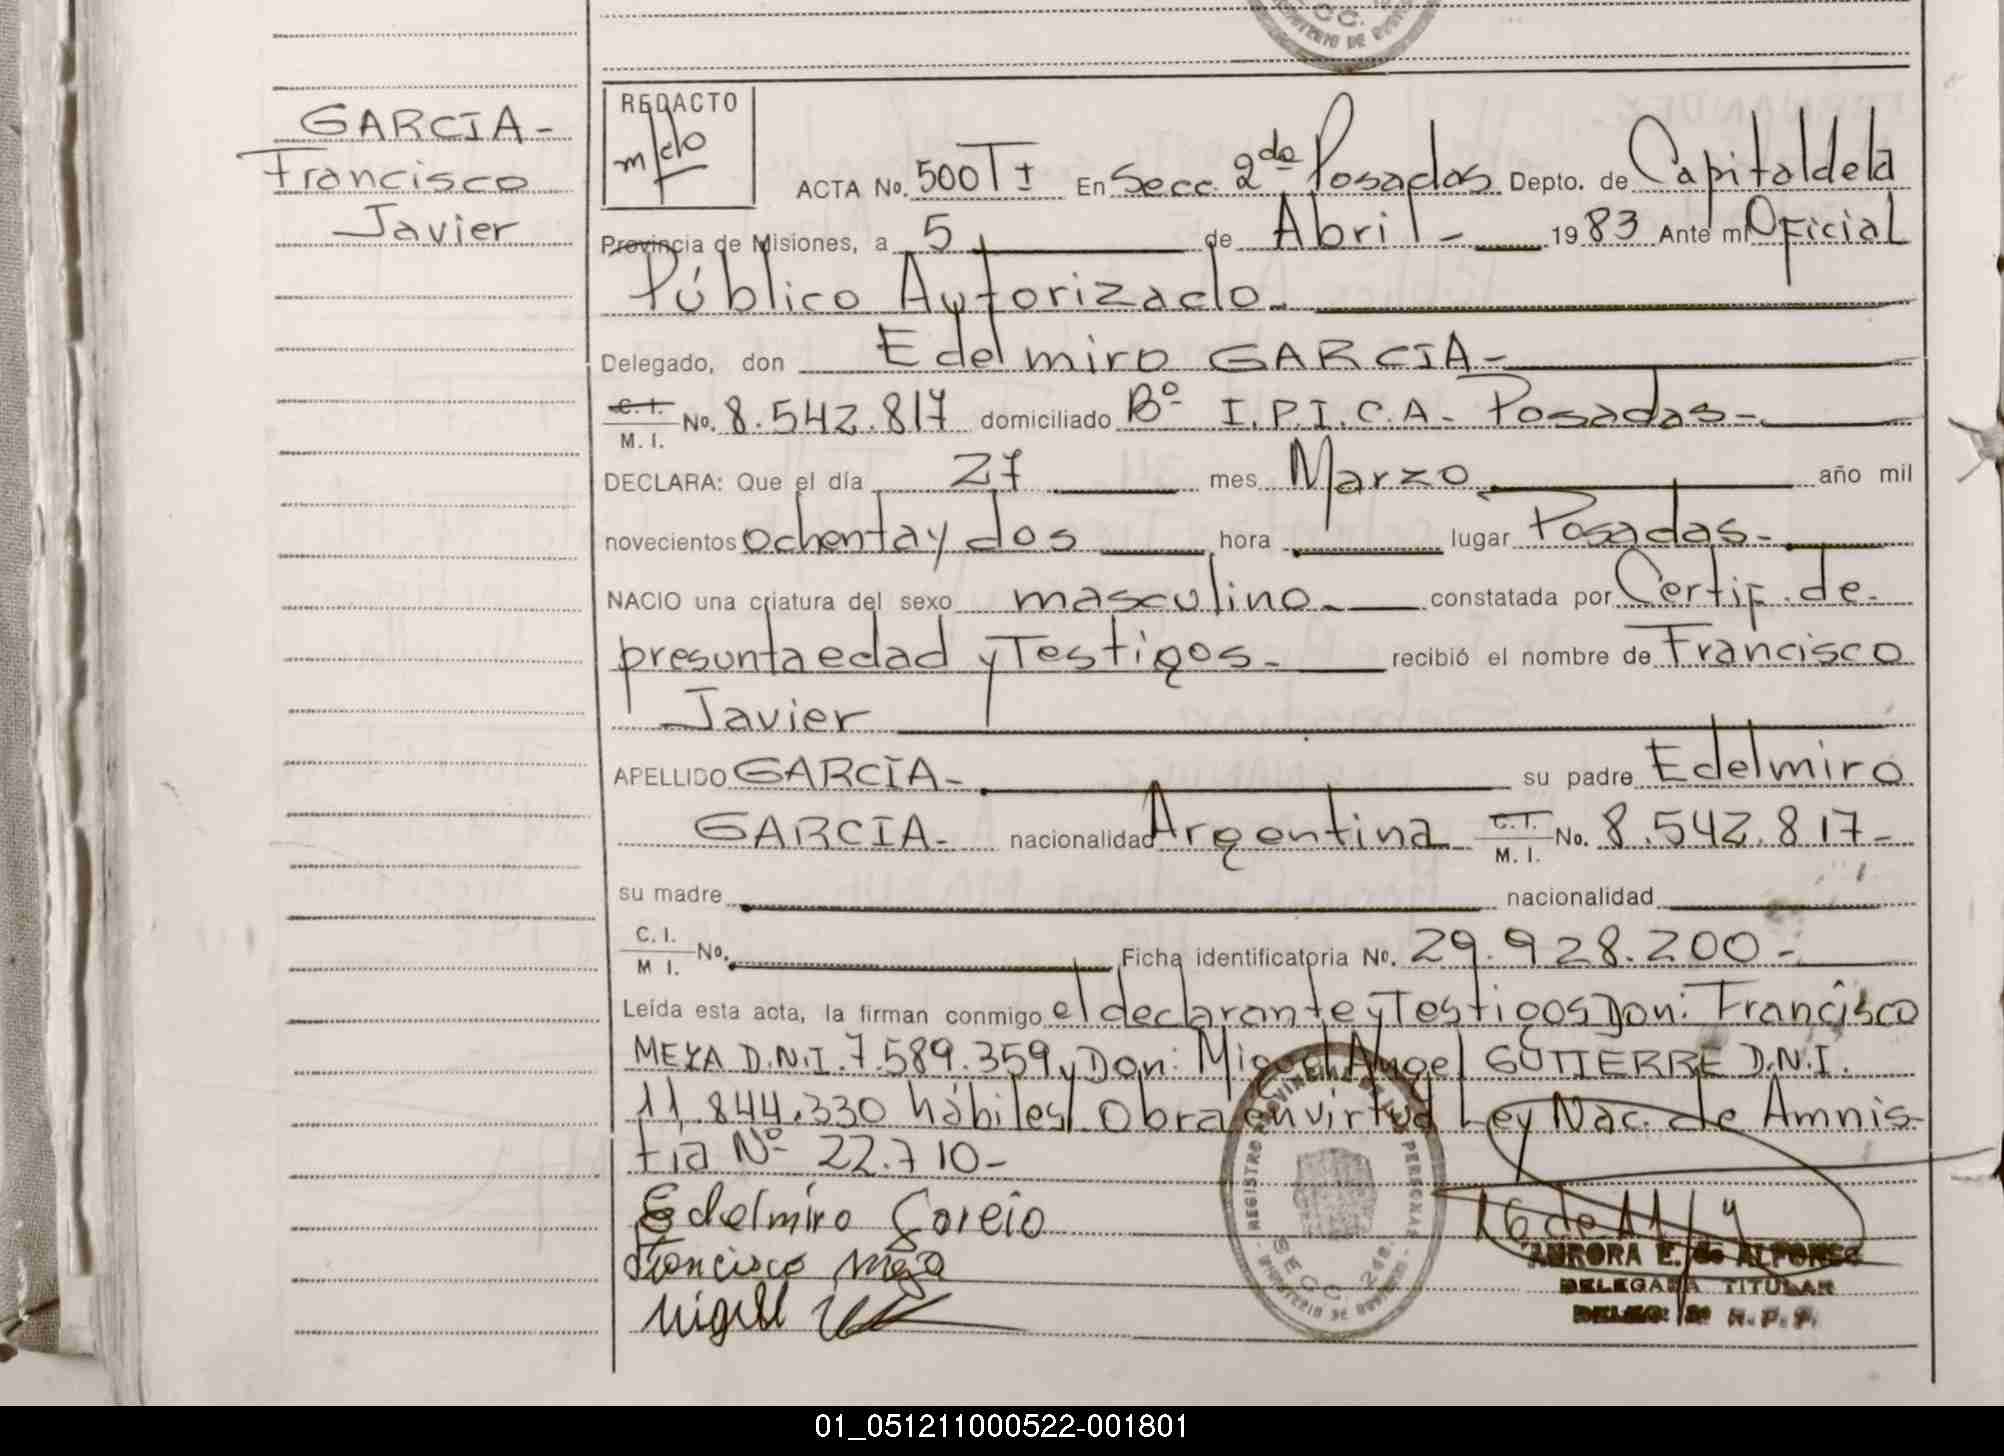 GARCIA-
Francisco
Javier
REDACTO
ACTA No. 500 T I En Secc. 2da Posadas Depto. de Capital de la
Provincia de Misiones, a 5 de Abril - 1983 Ante mi Oficial
Público Autorizado-
Delegado, don Edelmiro GARCIA-
C. I. / M. I. No. 8.542.817 domiciliado Bº I.P.I.C.A- Posadas-
DECLARA: Que el día 27 mes Marzo año mil
novecientos ochenta y dos hora lugar Posadas-
NACIO una criatura del sexo masculino- constatada por Certif. de
presunta edad y Testigos- recibió el nombre de Francisco
Javier
APELLIDO GARCÍA- su padre Edelmiro
GARCIA- nacionalidad Argentina C. I. / M. I. No. 8.542.817-
su madre nacionalidad
C. I. / M I. No. Ficha identificatoria No. 29.928.200-
Leída esta acta, la firman conmigo el declarante y Testigos Don: Francisco
MEZA D.N.I. 7.589.359 y Don: Miguel Angel GUTIERRE D.N.I.
11.844.330 hábiles/ Obra en virtud Ley Nac. de Amnis-
tía Nº 22.710-
Edelmiro Garcia
Francisco Meza
Miguel
REGISTRO PROVINCIAL DE LAS PERSONAS
SECC. 2da.
MINISTERIO DE GOBIERNO
AURORA E. de ALFONSO
DELEGADA TITULAR
DELEG. 2ª R. P. P.
01_051211000522-001801